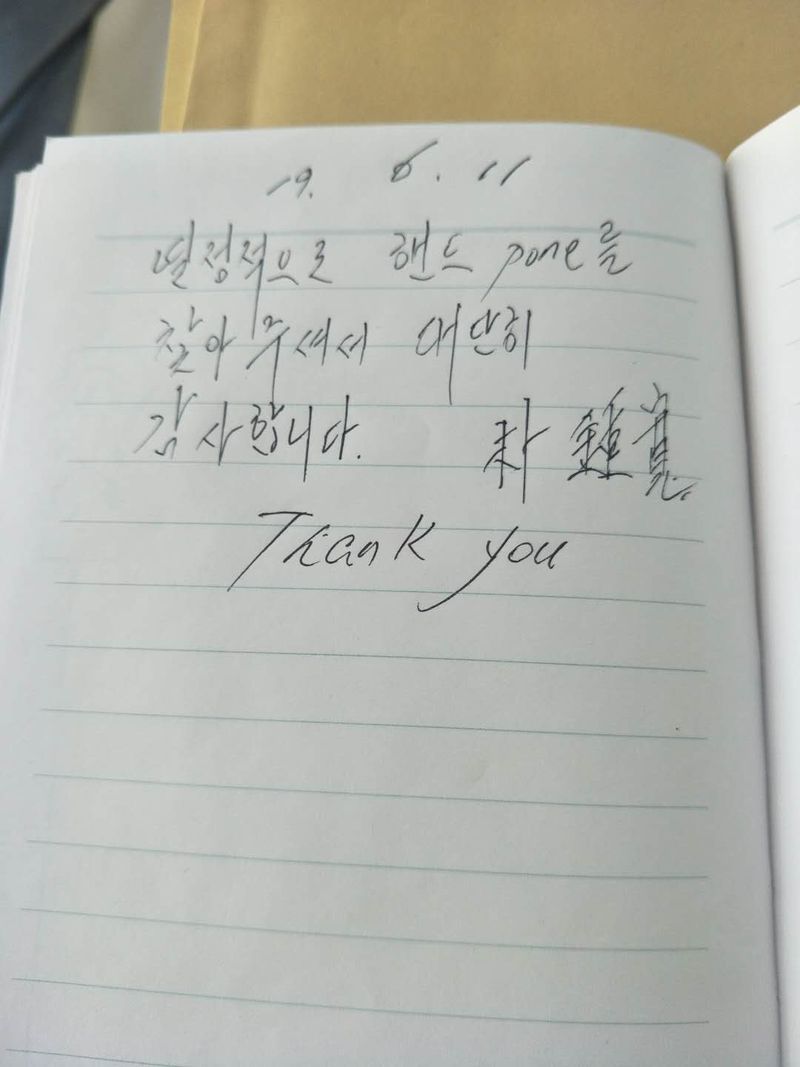 19. 6. 11
열정적으로 핸드 pone를
찾아 주셔서 대단히
감사합니다. 朴 鍾寬
Thank you